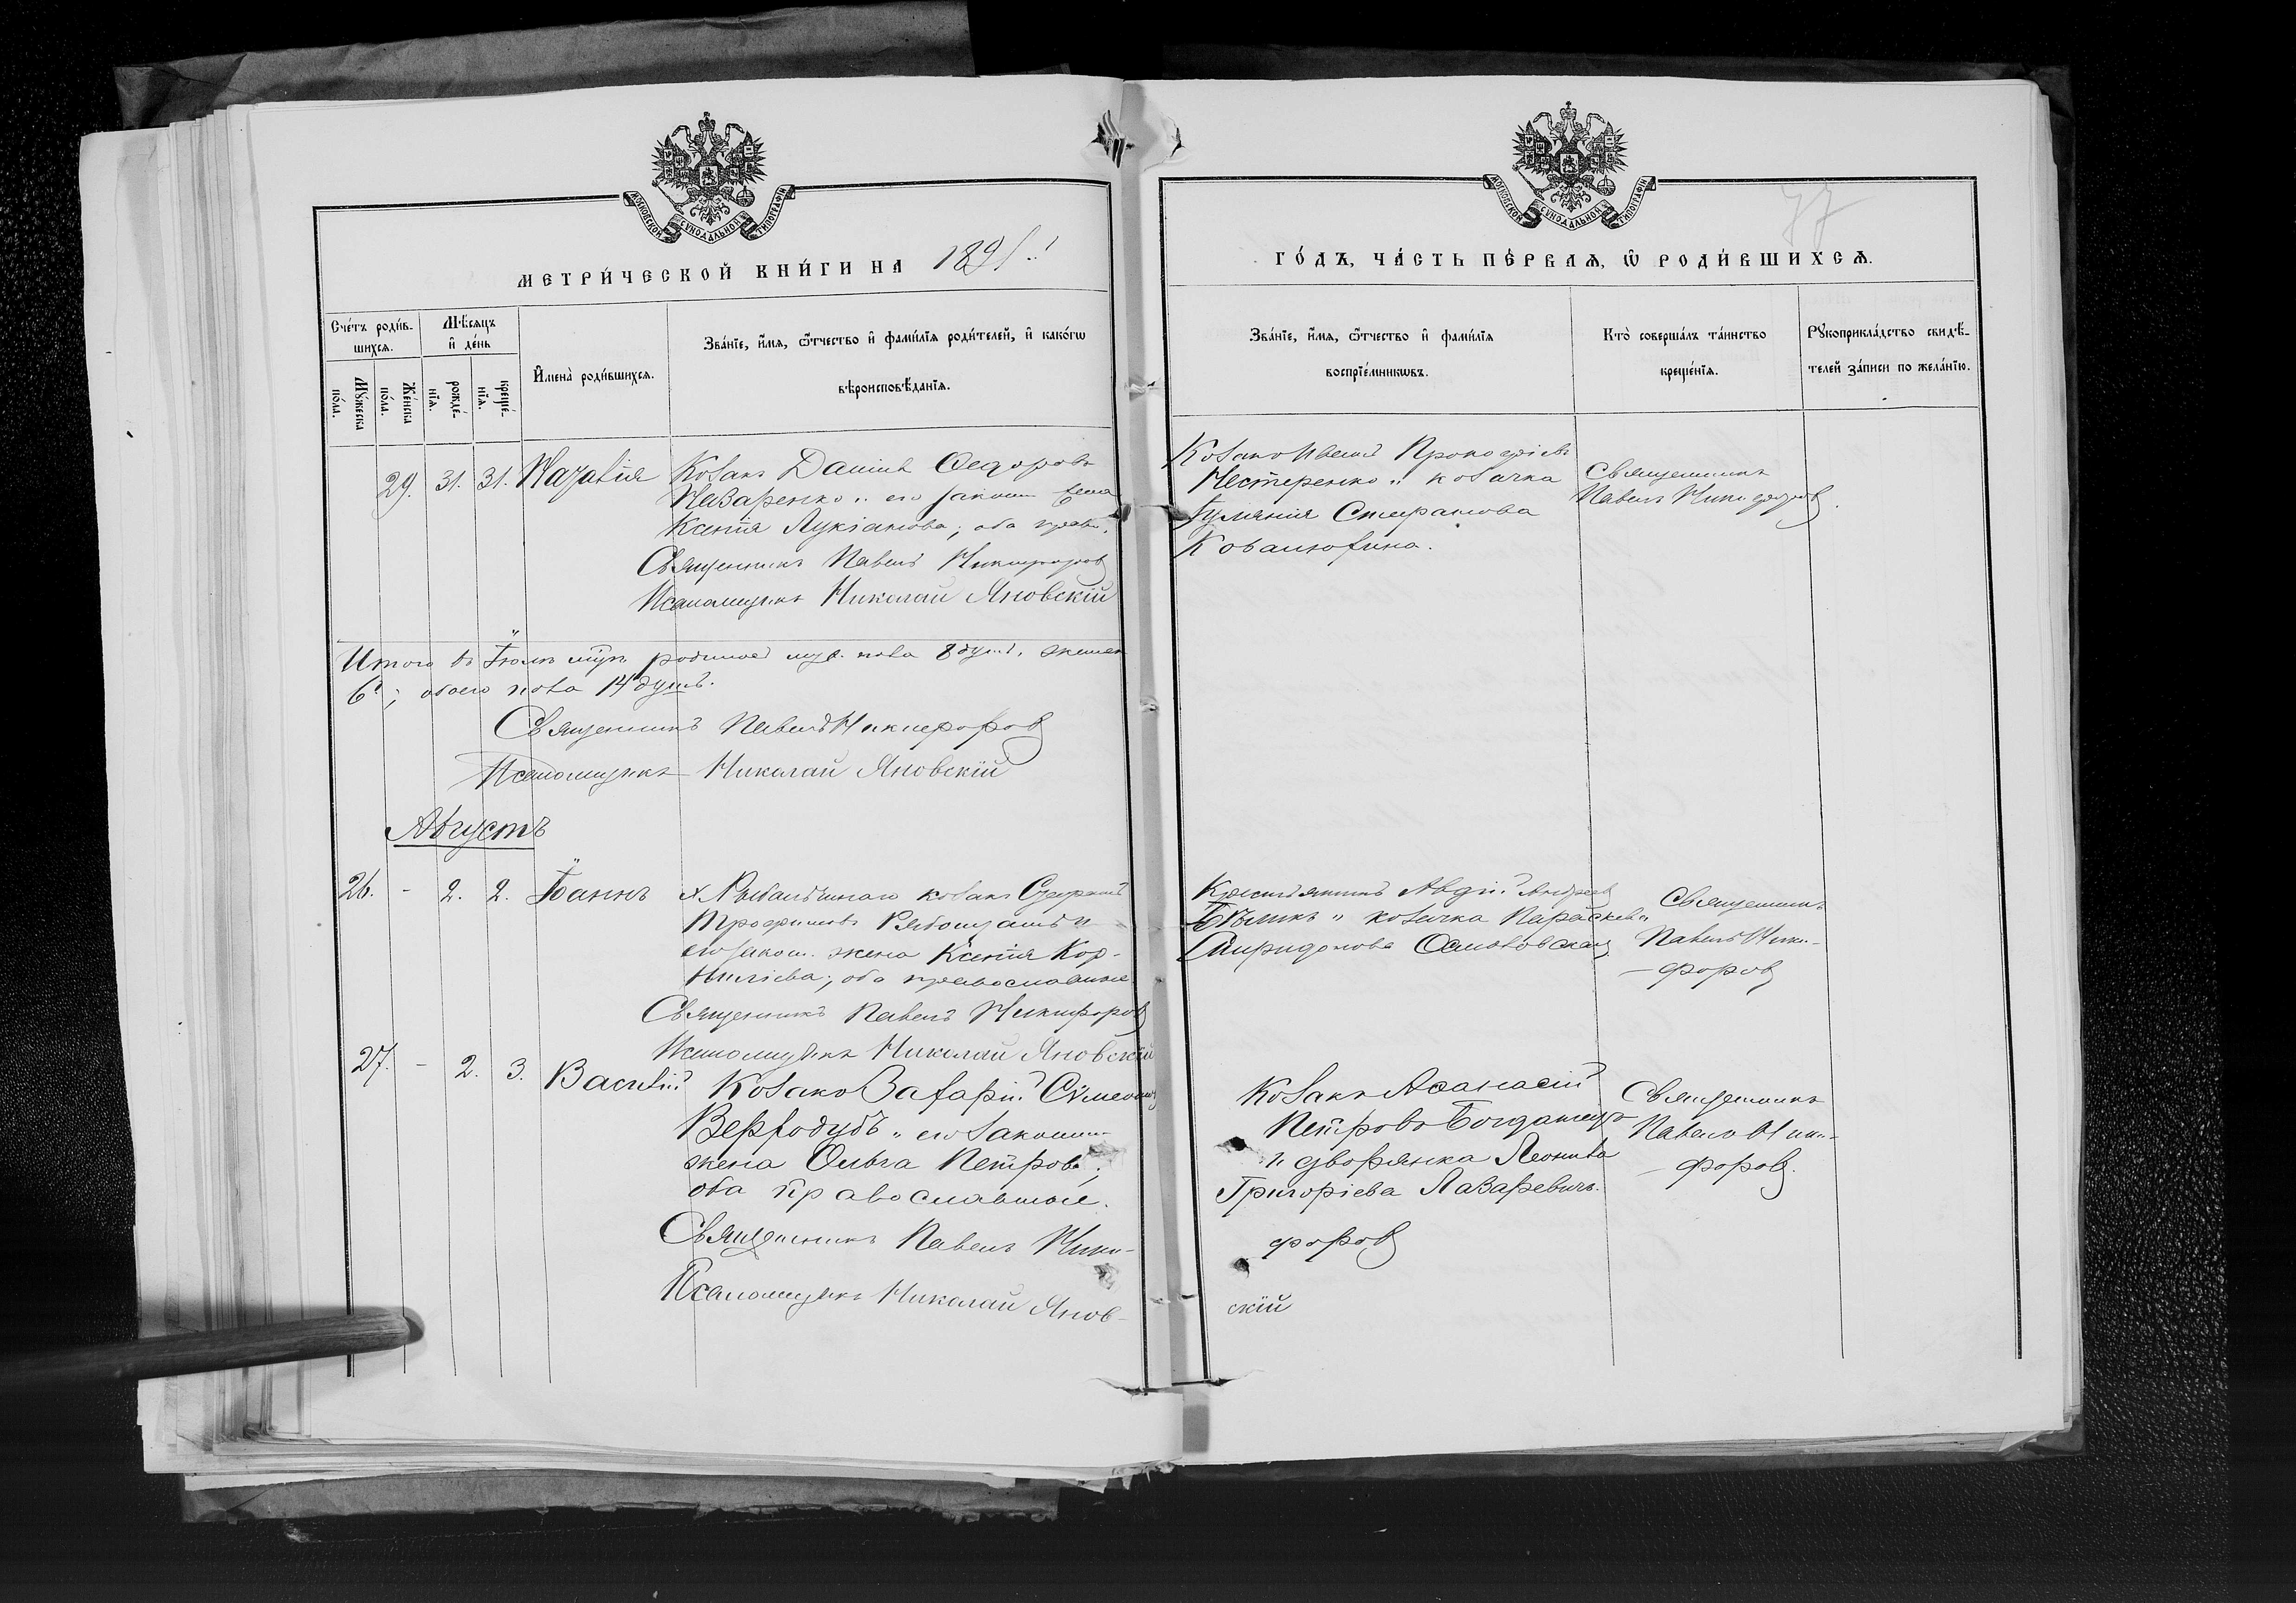 МОСКОВСКОЙ СѴНОДАЛЬНОЙ ТИПОГРАФІИ
МЕТРИ́ЧЕСКОЙ КНИ́ГИ НА 1891
Сче́тъ роди́в-
шихсѧ.
Мѣ́сѧцъ
и҆ де́нь
Мꙋ́жеска
по́ла.
Же́нска
по́ла.
рожде́-
нїѧ.
креще́-
нїѧ.
И҆мена̀ роди́вшихсѧ.
Зва́нїе, и҆́мѧ, ѻ҆́тчество и҆ фами́лїѧ роди́телей, и҆ како́гѡ
вѣроисповѣ́данїѧ.
29. 31. 31. Наталія Козакъ Даніилъ Ѳедоровъ
Назаренко и его законн жена
Ксенія Лукіанова; оба прав.
Священникъ Павелъ Никифоровъ
Псаломщикъ Николай Яновскій
Итого въ Іюлѣ мѣс. родилось муж. пола 8 душъ, женск
6; обоего пола 14 душъ.
Священникъ Павелъ Никифоровъ
Псаломщикъ Николай Яновскій
Августъ
26. - 2. 2. Іоаннъ х. козакъ
Трофимовъ и
его закон. жена Ксенія Кор-
ниліева; оба православные
Священникъ Павелъ Никифоровъ
Псаломщикъ Николай Яновскій
27. - 2. 3. Василій Козакъ Захарій Сѵмеоновъ
Вергодубъ и его законн
жена Ольга Петрова;
оба православные.
Священникъ Павелъ Ники-
Псаломщикъ Николай Янов-
МОСКОВСКОЙ СѴНОДАЛЬНОЙ ТИПОГРАФІИ
77
ГО́ДЪ, ЧА́СТЬ ПЕ́РВАѦ, Ѡ҆ РОДИ́ВШИХСѦ.
Зва́нїе, и҆́мѧ, ѻ҆́тчество и҆ фами́лїѧ
воспрїе́мникѡвъ.
Кто̀ соверша́лъ та́инство
креще́нїѧ.
Рꙋкоприкла́дство свидѣ́-
телей за́писи по жела́нїю.
Козакъ Иванъ Прокофіевъ
Нестеренко и козачка
Стефанова
Священникъ
Павелъ Никифоровъ.
Крестьянинъ Авдій Андреевъ
и козачка Параскева
Спиридонова
Священникъ
Павелъ Ники-
-форовъ
Козакъ Аѳанасій
Петровъ
и дворянка Леонила
Григоріева Лазаревичъ.
форовъ
скій
Священникъ
Павелъ Ники-
-форовъ.